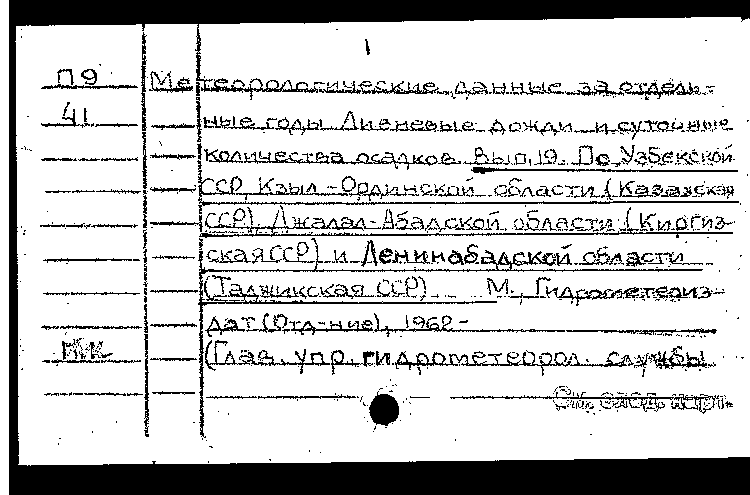 1
П9 Метеорологические данные за отдель-
41 ные годы Ливневые дожди и суточные
количества осадков. Вып. 19. По Узбекской
ССР, Кзыл-Ординской области (Казахская
ССР), Джалал-Абадской области (Киргиз-
ская ССР) и Ленинабадской области
(Таджикская ССР) М., Гидрометеоиз-
дат (Отд-ние), 1962-
(Глав. упр. гидрометеорол. службы
См. след. карт.